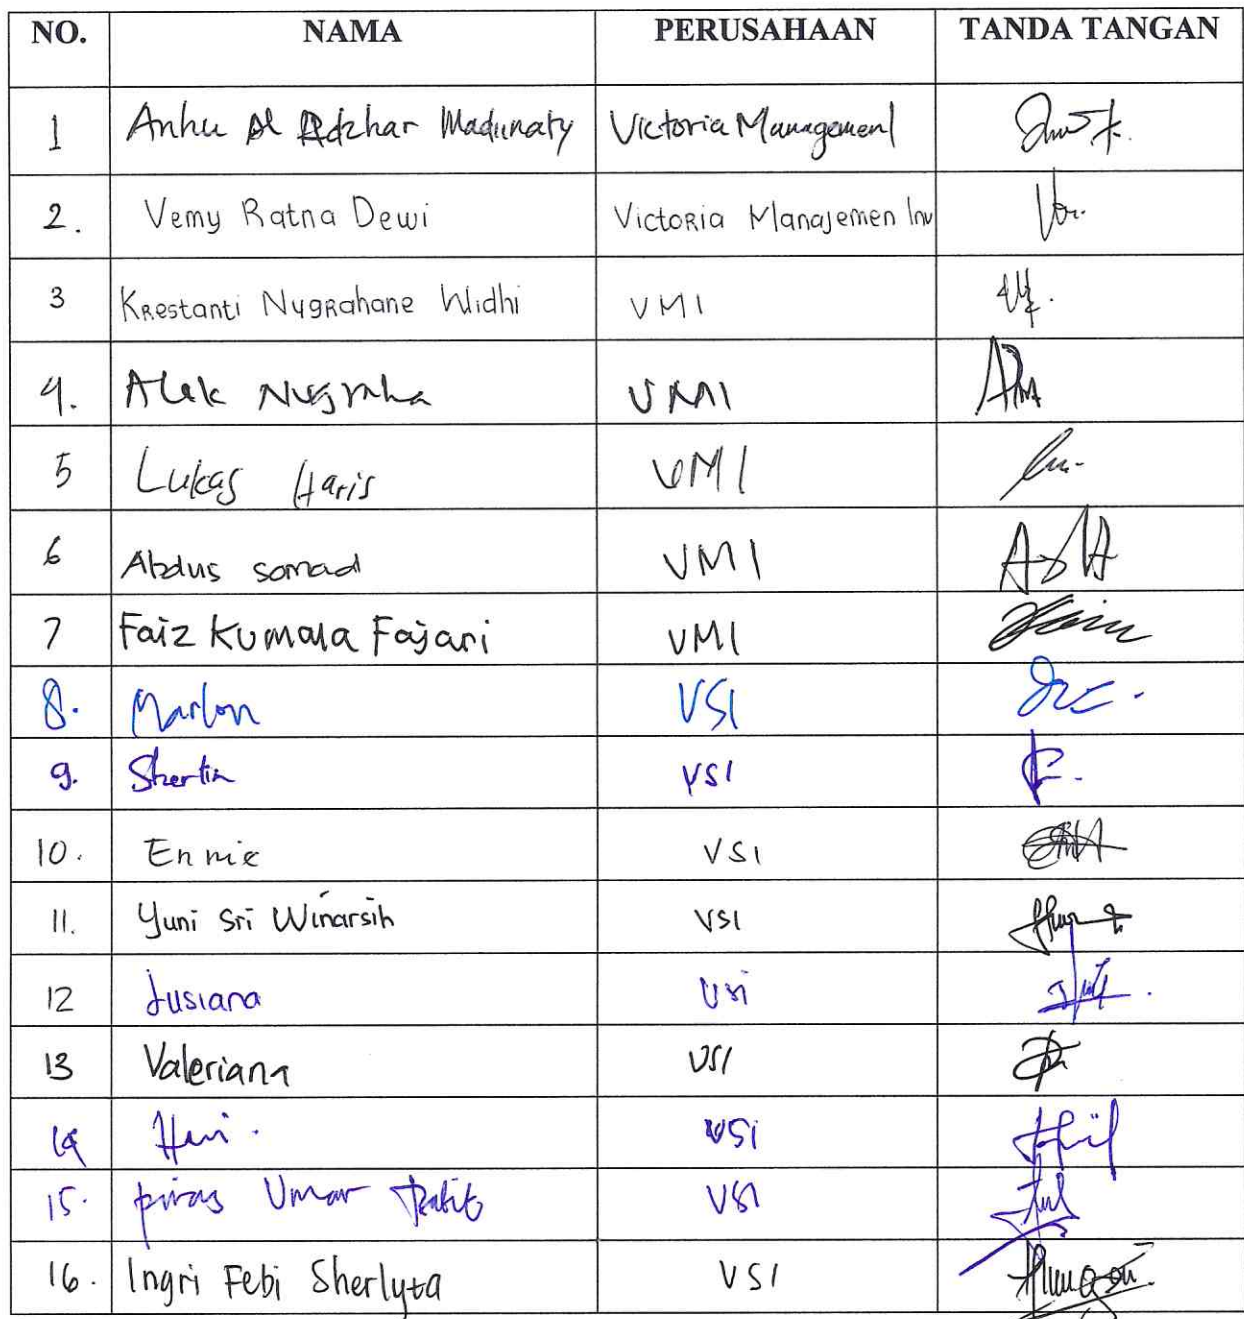 NO. NAMA PERUSAHAAN TANDA TANGAN
1 Anhu Al Adzhar Madunaty Victoria Management
2. Vemy Ratna Dewi Victoria Manajemen Inv
3 Krestanti Nugrahane Widhi VMI
4. Alek Nugraha VMI
5 Lukas Haris VMI
6 Abdus somad VMI
7 Faiz Kumala Fajari VMI
8. Marlon VSI
9. Sherlin VSI
10. Ennie VSI
11. Yuni Sri Winarsih VSI
12 Jusiana VSI
13 Valeriana VSI
14 Heri. VSI
15. Umar VSI
16. Ingri Febi Sherlyta VSI